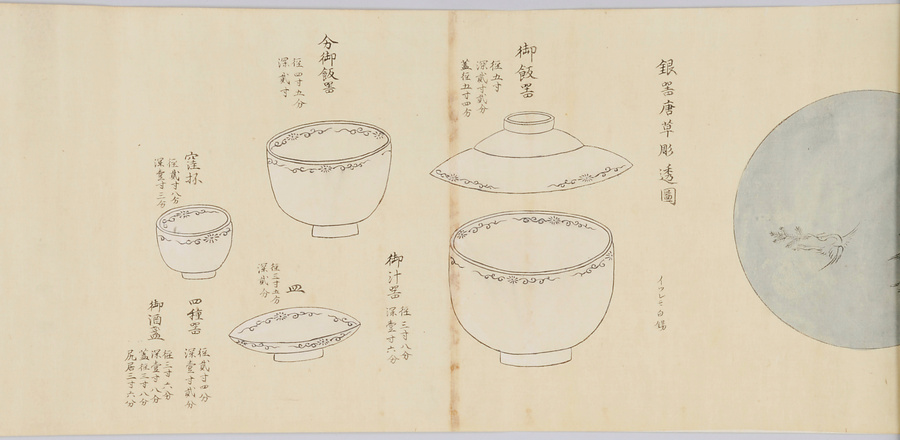 銀器唐草彫透圖
御飯器
径五寸
深貳寸貳分
蓋径五寸四分
分御飯器
径四寸五分
深貳寸
御汁器
径三寸八分
深壹寸六分
皿
径三寸五分
深貳分
窪坏
径貳寸八分
深壹寸三分
四種器
径貳寸四分
深壹寸貳分
御酒盃
径三寸六分
深壹寸八分
蓋径三寸八分
尻居三寸六分